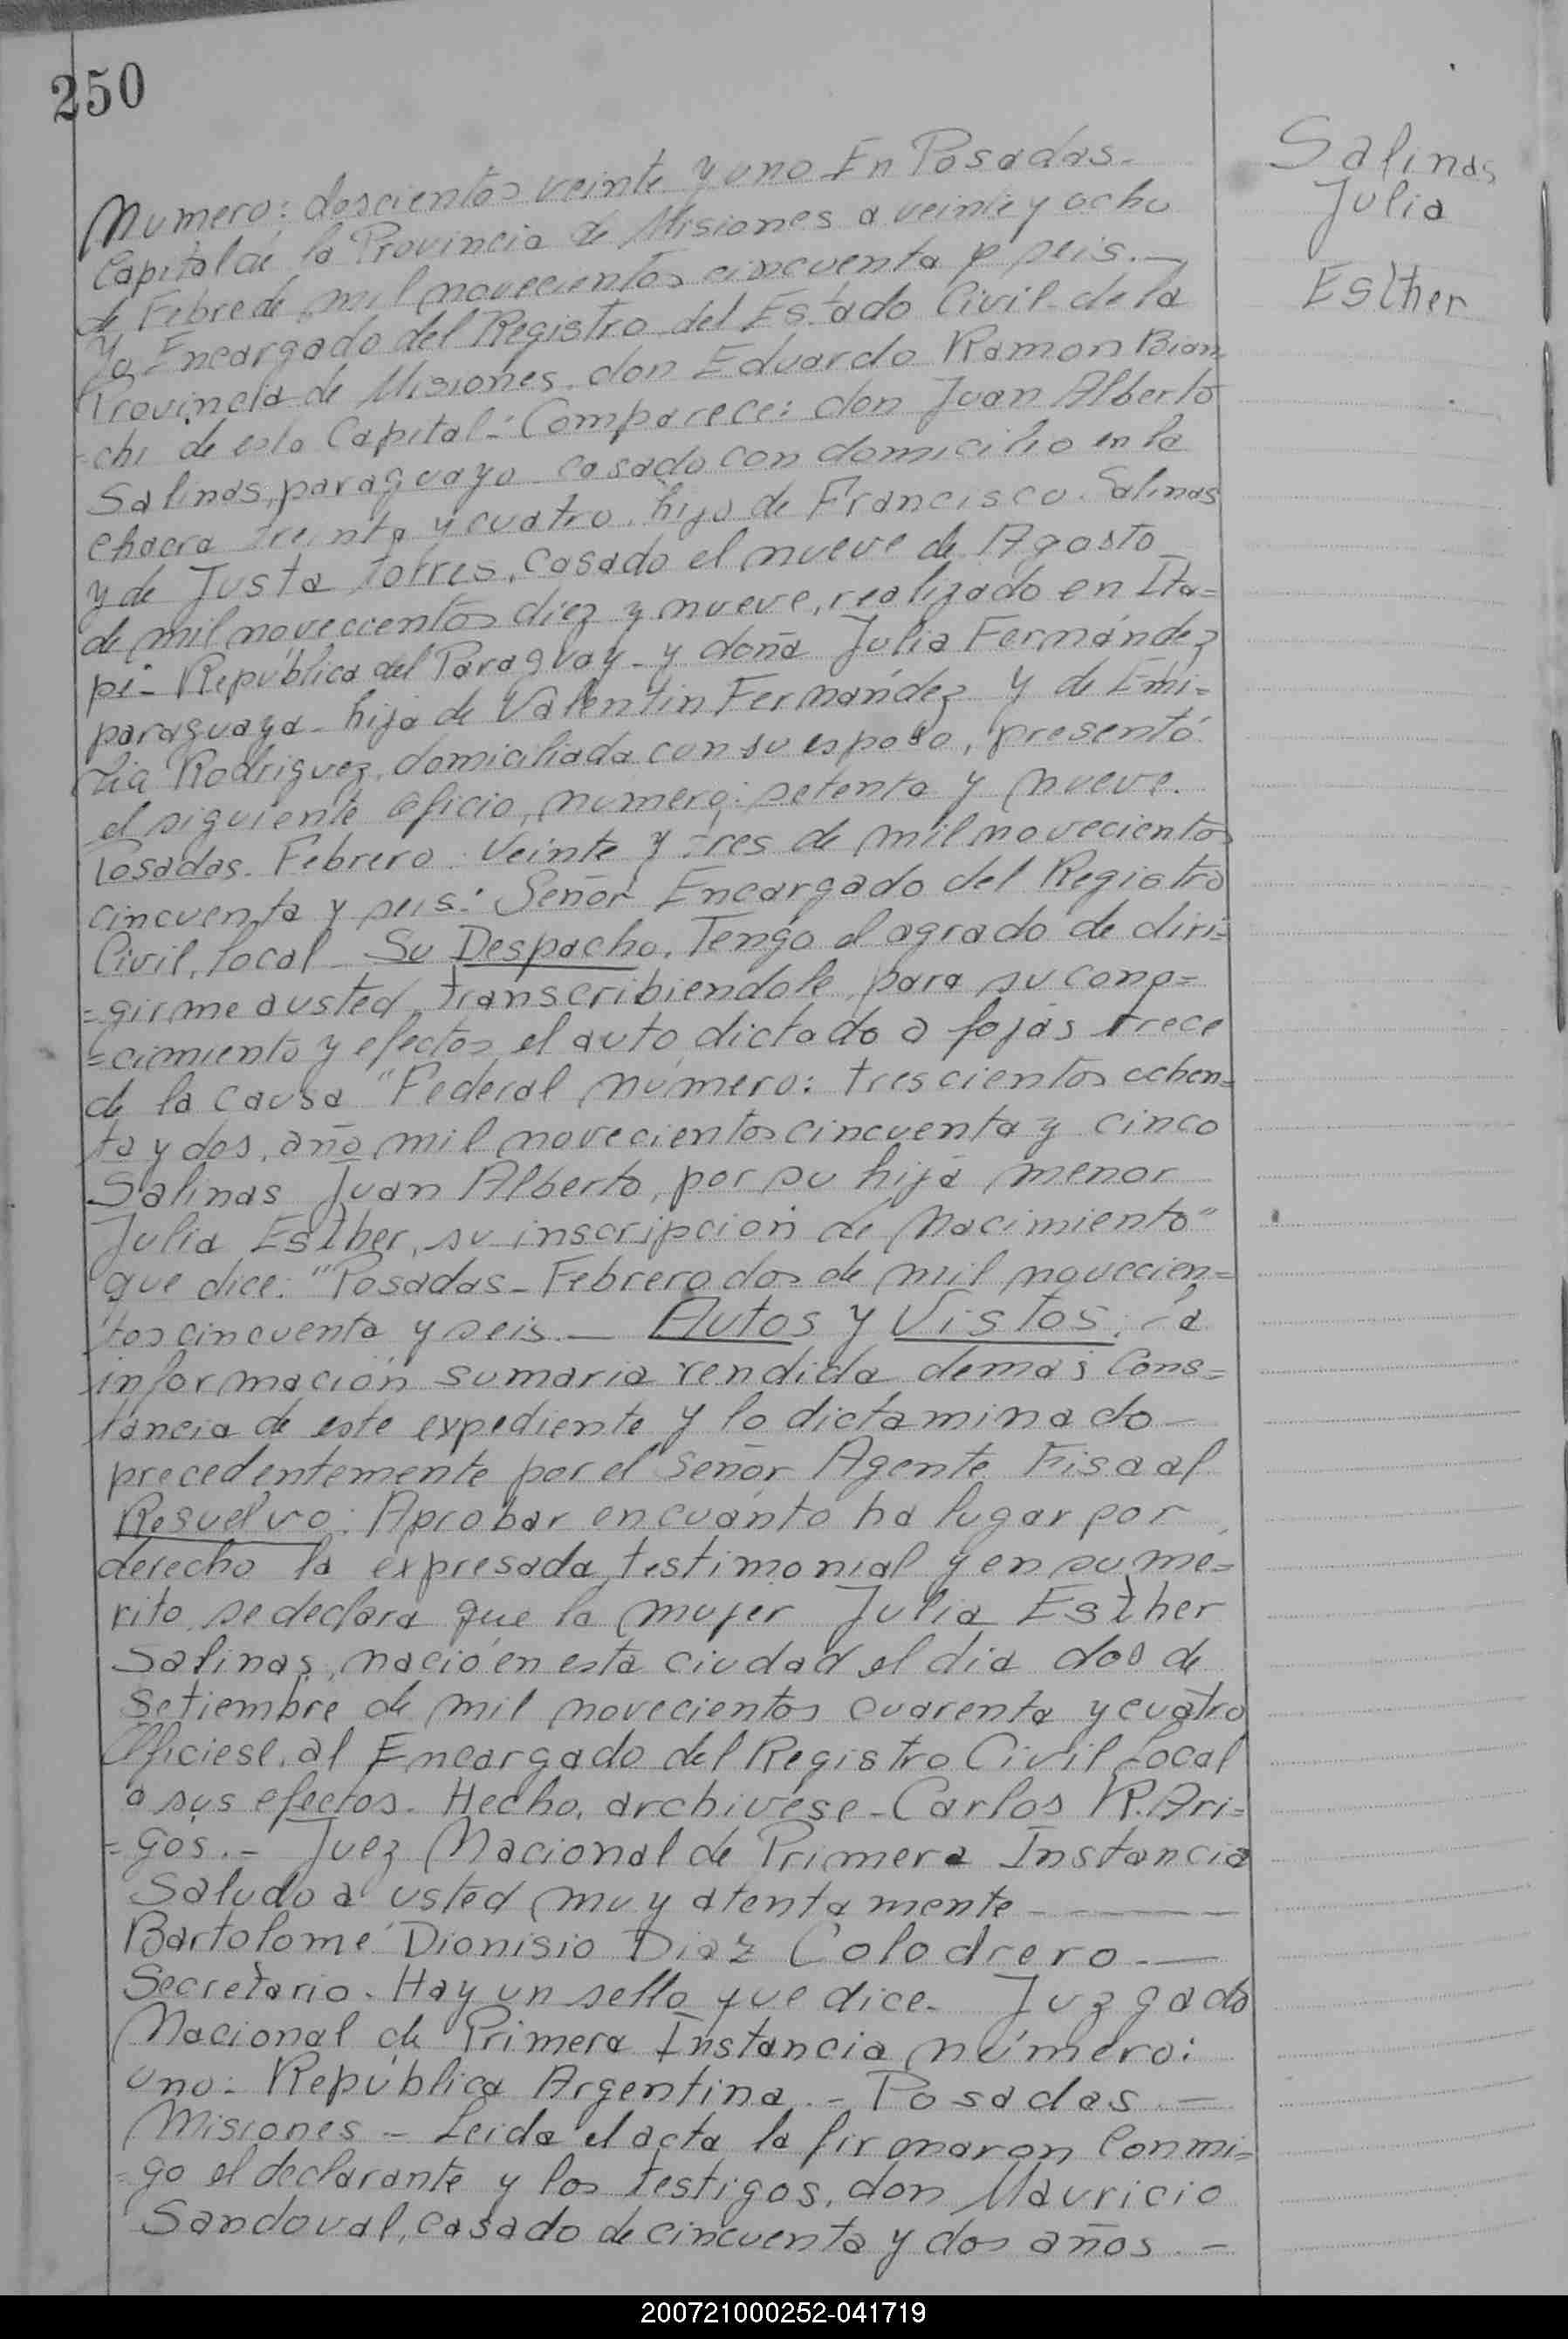 250
Salinas
Julia
Esther
Numero: doscientos veinte y uno En Posadas.
Capital de la Provincia de Misiones a veinte y ocho
de Febre de mil novecientos cincuenta y seis.—
Yo Encargado del Registro del Estado Civil de la
Provincia de Misiones. don Eduardo Ramon Bian
=chi de esta Capital-: Comparece: don Juan Alberto
Salinas, paraguayo casado con domicilio en la
chacra treinta y cuatro, hijo de Francisco Salinas
y de Justa Torres, casado el nueve de Agosto
de mil novecientos diez y nueve, realizado en Ita=
pé- República del Paraguay- y doña Julia Fernández
paraguaya- hija de Valentin Fernández y de Emi=
lia Rodriguez, domiciliada con su esposo, presentó
el siguiente oficio, numero: setenta y nueve.
Posadas. Febrero veinte y tres de mil novecientos
cincuenta y seis: Señor Encargado del Registro
Civil, local- Su Despacho. Tengo el agrado de diri=
=girme a usted, transcribiendole para su cono=
=cimiento y efectos el auto dictado a fojas trece
de la causa "Federal número: trescientos ochen=
ta y dos, año mil novecientos cincuenta y cinco
Salinas Juan Alberto, por su hija menor
Julia Esther, su inscripción de Nacimiento"
que dice: "Posadas- Febrero dos de mil novecien=
tos cincuenta y seis.— Autos y Vistos; la
información sumaria rendida demás Cons=
tancia de este expediente y lo dictaminado-
precedentemente por el Señor Agente Fiscal
Resuelvo: Aprobar en cuanto ha lugar por
derecho la expresada testimonial y en su mé=
rito, se declara que la mujer Julia Esther
Salinas, nació en esta ciudad el dia dos de
Setiembre de mil novecientos cuarenta y cuatro
Ofíciese. al Encargado del Registro Civil Local
a sus efectos. Hecho, archivése- Carlos R. Ari=
=gós.- Juez Nacional de Primera Instancia
Saludo a usted muy atentamente - — — —
Bartolomé Dionisio Diaz Colodrero.—
Secretario. Hay un sello que dice- Juzgado
Nacional de Primera Instancia número:
uno: República Argentina.- Posadas.—
Misiones- Leida el acta la firmaron Conmi=
=go el declarante y los testigos, don Mauricio
Sandoval, casado de cincuenta y dos años.-
200721000252-041719